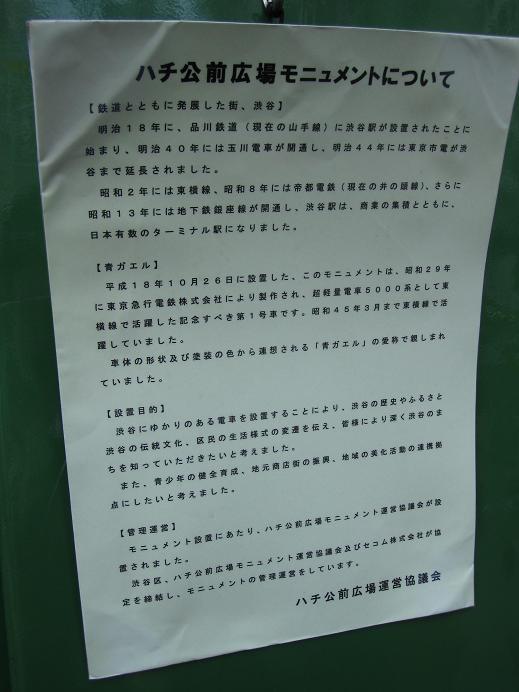 ハチ公前広場モニュメントについて
【鉄道とともに発展した街、渋谷】
明治18年に、品川鉄道(現在の山手線)に渋谷駅が設置されたことに
始まり、明治40年には玉川電車が開通し、明治44年には東京市電が渋
谷まで延長されました。
昭和2年には東横線、昭和8年には帝都電鉄(現在の井の頭線)、さらに
昭和13年には地下鉄銀座線が開通し、渋谷駅は、商業の集積とともに、
日本有数のターミナル駅になりました。
【青ガエル】
平成18年10月26日に設置した、このモニュメントは、昭和29年
に東京急行電鉄株式会社により製作され、超軽量電車5000系として東
横線で活躍した記念すべき第1号車です。昭和45年3月まで東横線で活
躍していました。
車体の形状及び塗装の色から連想される「青ガエル」の愛称で親しまれ
ていました。
【設置目的】
渋谷にゆかりのある電車を設置することにより、渋谷の歴史やふるさと
渋谷の伝統文化、区民の生活様式の変遷を伝え、皆様により深く渋谷のま
ちを知っていただきたいと考えました。
また、青少年の健全育成、地元商店街の振興、地域の美化活動の連携拠
点にしたいと考えました。
【管理運営】
モニュメント設置にあたり、ハチ公前広場モニュメント運営協議会が設
置されました。
渋谷区、ハチ公前広場モニュメント運営協議会及びセコム株式会社が協
定を締結し、モニュメントの管理運営をしています。
ハチ公前広場運営協議会